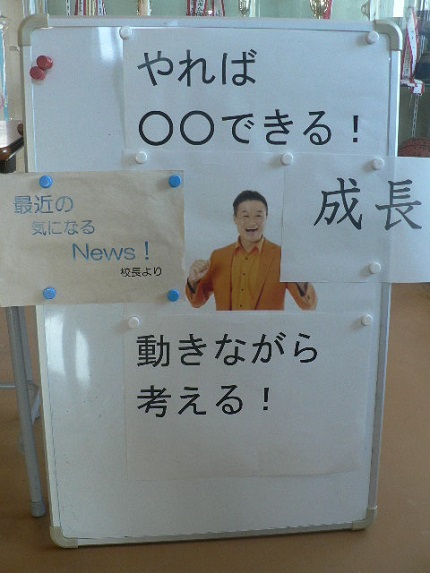 やれば
〇〇できる！
最近の
気になる
News！
校長より
成長
動きながら
考える！